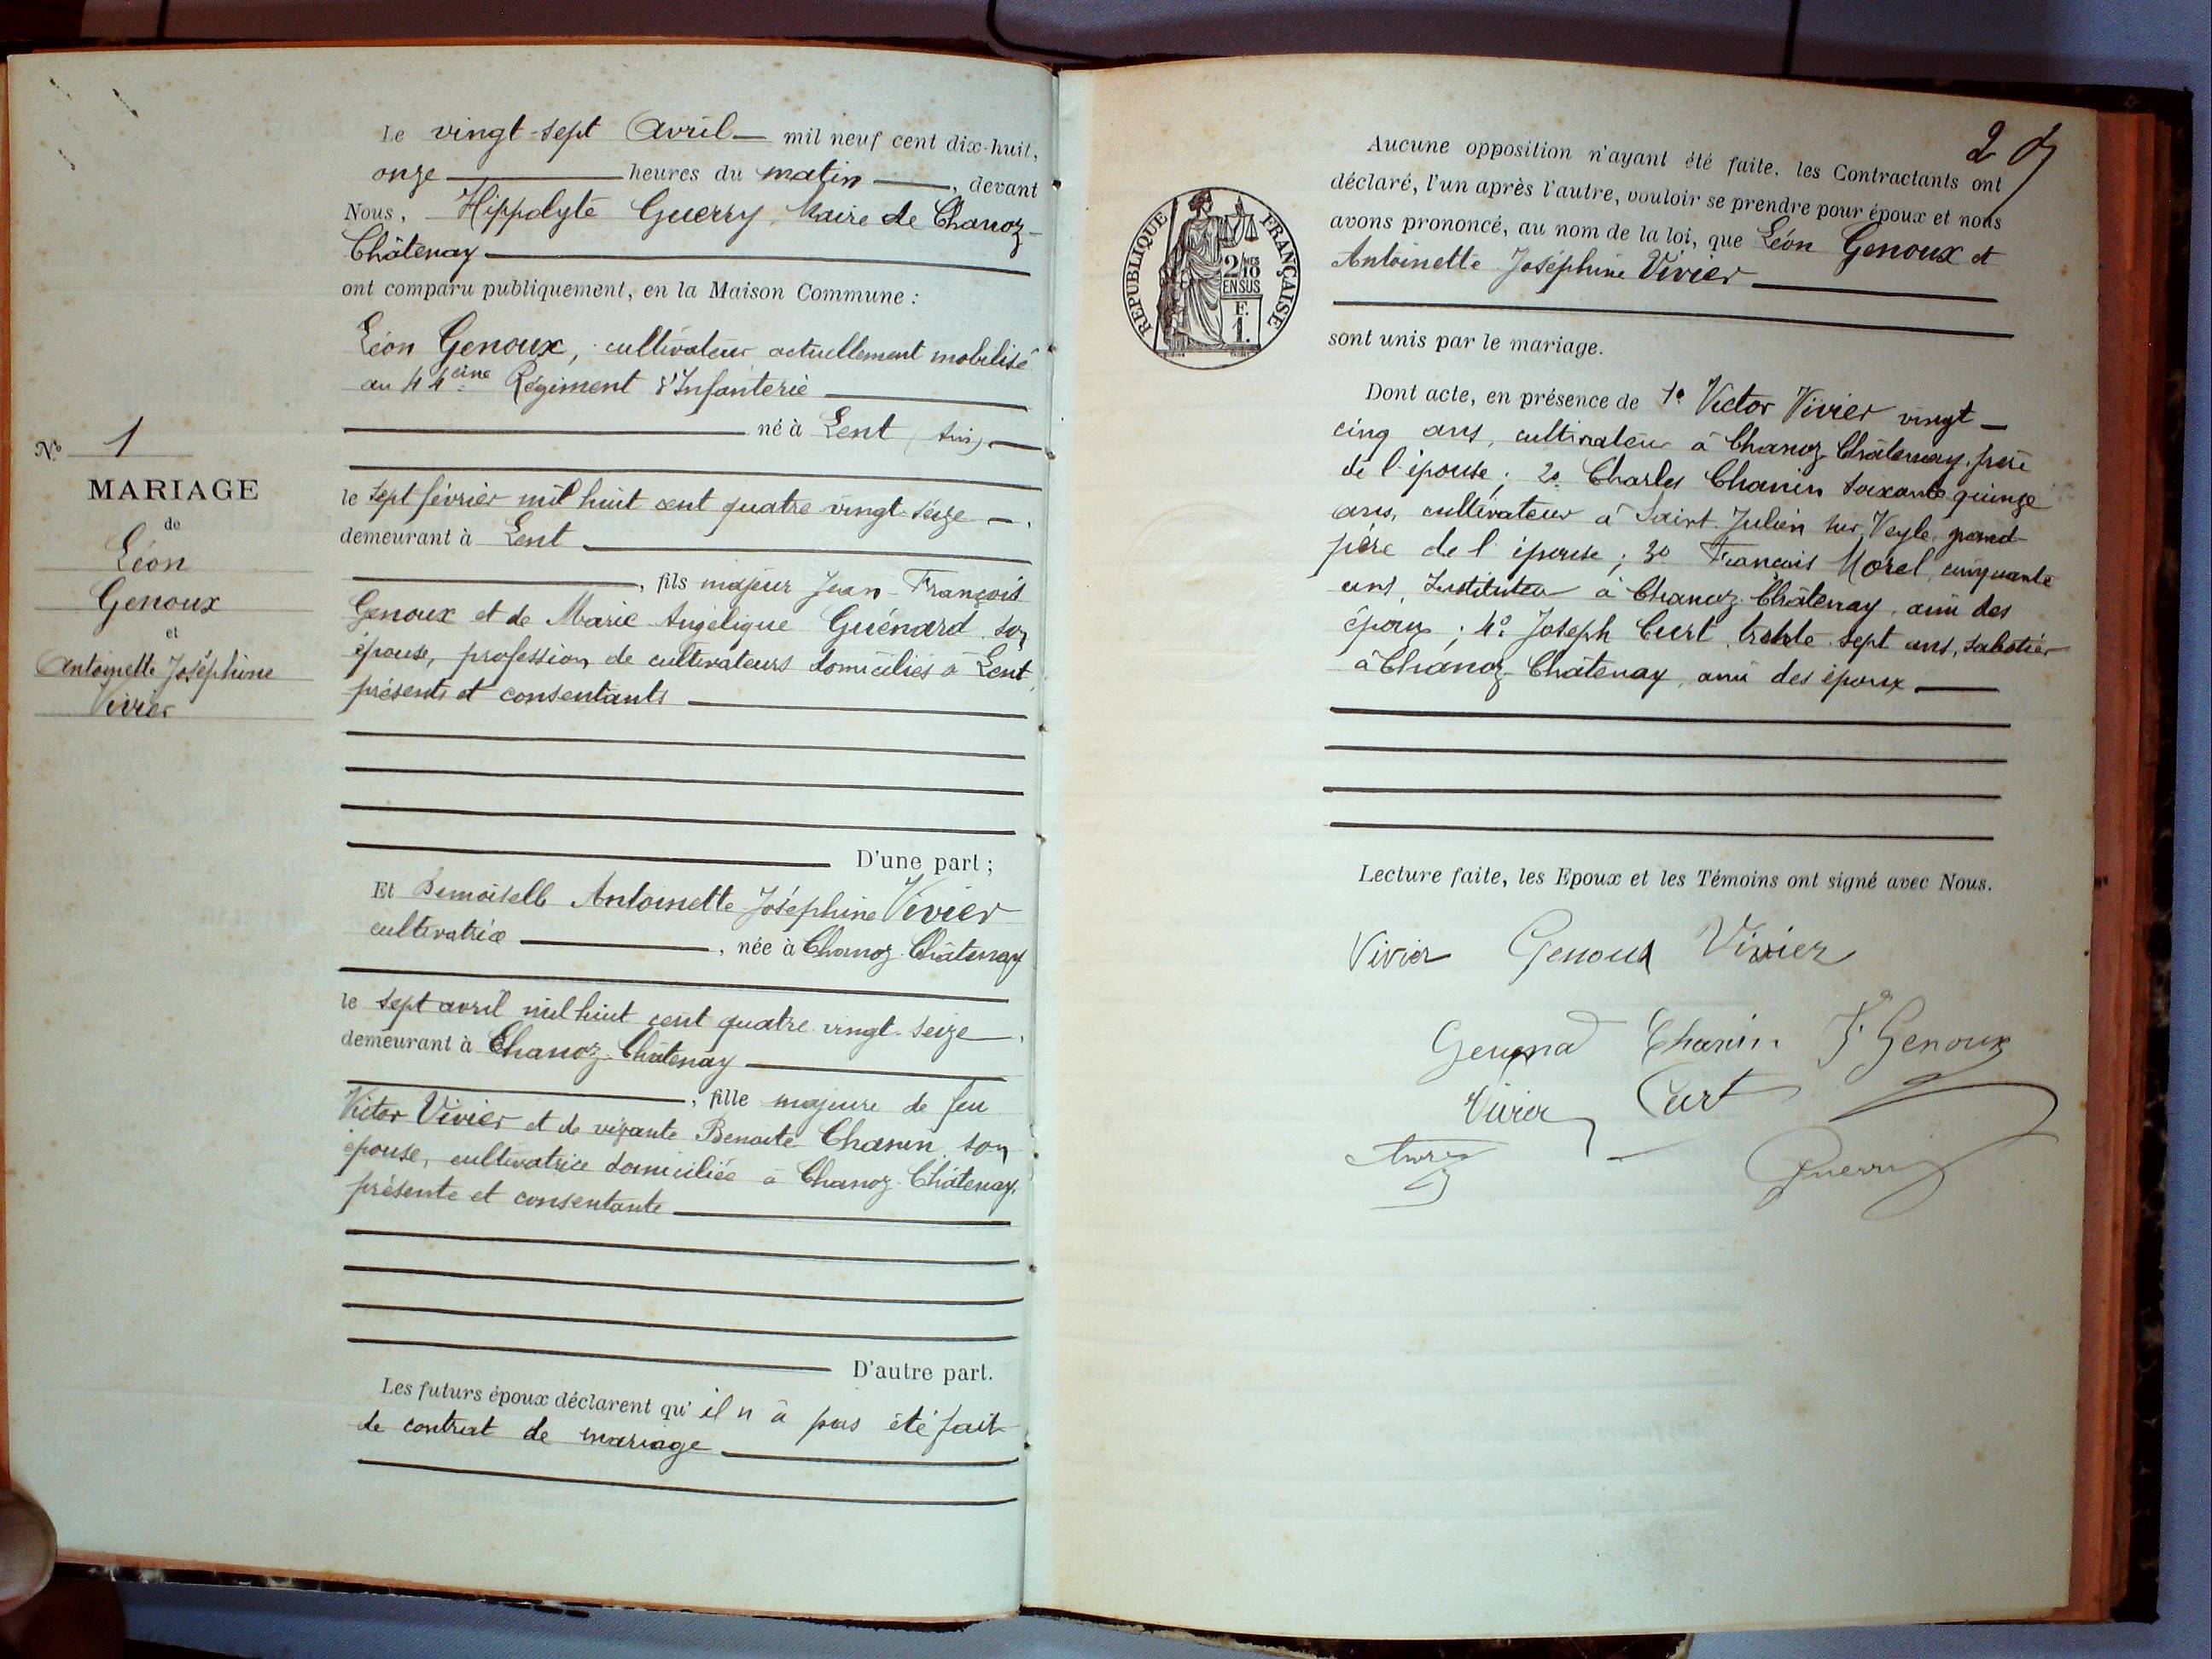 Le vingt-sept Avril mil neuf cent dix-huit,
onze heures du matin, devant
Nous, Hippolyte Guerry, Maire de Chanoz-
Châtenay
ont comparu publiquement, en la Maison Commune :
Léon Genoux, cultivateur actuellement mobilisé
au 44eme Régiment d'Infanterie
né à Lent (Ain)
le sept février mil huit cent quatre vingt-seize,
demeurant à Lent
, fils majeur Jean-François
Genoux et de Marie Angélique Guénard son
épouse, profession de cultivateurs domiciliés à Lent,
présents et consentants
D'une part ;
Et Demoiselle Antoinette Joséphine Vivier
cultivatrice, née à Chanoz-Châtenay
le sept avril mil huit cent quatre vingt-seize,
demeurant à Chanoz-Châtenay
, fille majeure de feu
Victor Vivier et de vivante Benoite Chanin son
épouse, cultivatrice domiciliée à Chanoz-Châtenay,
présente et consentante
D'autre part.
Les futurs époux déclarent qu'il n'a pas été fait
de contrat de mariage
No 1
MARIAGE
de
Léon
Genoux
et
Antoinette Joséphine
Vivier
2
RÉPUBLIQUE FRANÇAISE
2/10 MES
EN SUS
F.
1.
Aucune opposition n'ayant été faite, les Contractants ont
déclaré, l'un après l'autre, vouloir se prendre pour époux et nous
avons prononcé, au nom de la loi, que Léon Genoux et
Antoinette Joséphine Vivier
sont unis par le mariage.
Dont acte, en présence de 1° Victor Vivier vingt-
cinq ans, cultivateur à Chanoz-Châtenay, frère
de l'épouse ; 2° Charles Chanin soixante quinze
ans, cultivateur à Saint-Julien sur Veyle, grand-
père de l'épouse ; 3° François Morel, cinquante
ans, Instituteur à Chanoz-Châtenay, ami des
époux ; 4° Joseph Curt, trente-sept ans, sabotier
à Chanoz-Châtenay, ami des époux
Lecture faite, les Epoux et les Témoins ont signé avec Nous.
Vivier Genoux Vivier
Chanin Fs Genoux
Vivier Curt
Guerry